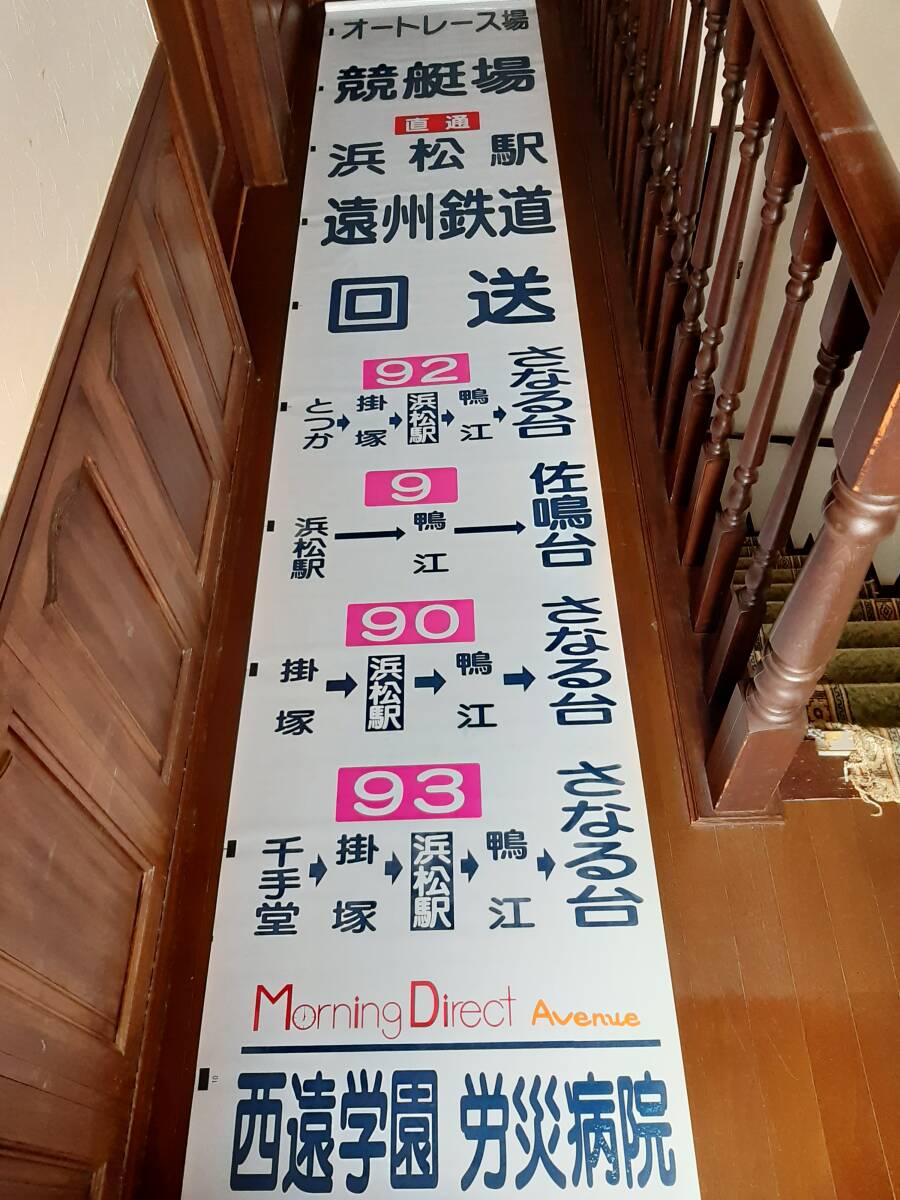 オートレース場
競艇場
直通
浜松駅
遠州鉄道
回送
92
とつか→掛塚→浜松駅→鴨江→さなる台
9
浜松駅→鴨江→佐鳴台
90
掛塚→浜松駅→鴨江→さなる台
93
千手堂→掛塚→浜松駅→鴨江→さなる台
Morning Direct Avenue
10
西遠学園 労災病院